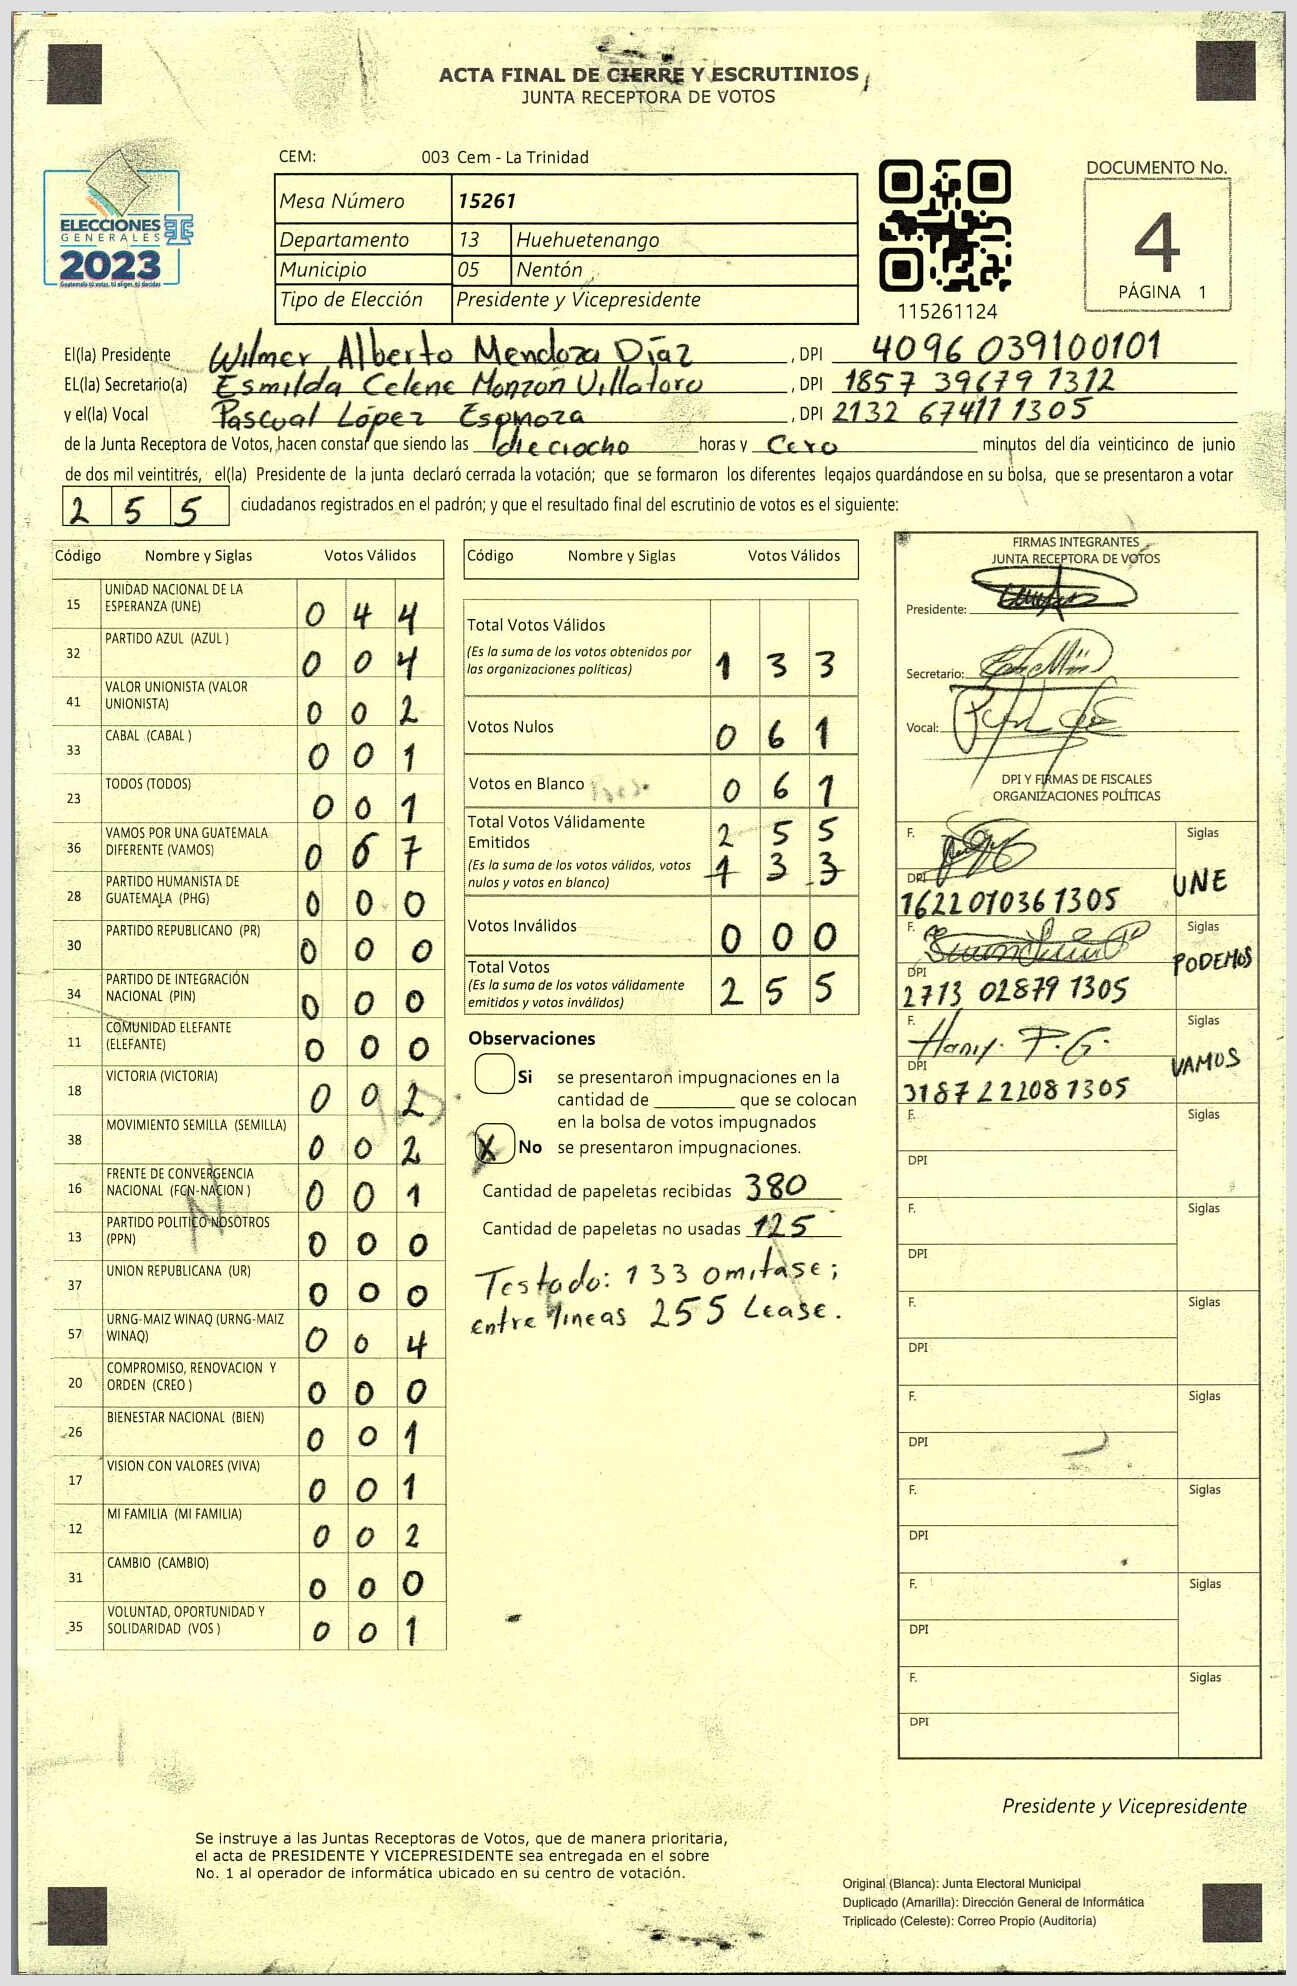 ACTA FINAL DE CIERRE Y ESCRUTINIOS
JUNTA RECEPTORA DE VOTOS
CEM: 003 Cem - La Trinidad
Mesa Número 15261
Departamento 13 Huehuetenango
Municipio 05 Nentón
Tipo de Elección Presidente y Vicepresidente
ELECCIONES
GENERALES
2023
Guatemala tú votas, tú eliges, tú decides
115261124
DOCUMENTO No.
4
PÁGINA 1
El(la) Presidente Wilmer Alberto Mendoza Díaz , DPI 4096 039100101
EL(la) Secretario(a) Esmilda Celene Monzon Villatoro , DPI 1857 39679 1312
y el(la) Vocal Pascual López Espinoza , DPI 2132 67411 1305
de la Junta Receptora de Votos, hacen constar que siendo las dieciocho horas y Cero minutos del día veinticinco de junio
de dos mil veintitrés, el(la) Presidente de la junta declaró cerrada la votación; que se formaron los diferentes legajos guardándose en su bolsa, que se presentaron a votar
2 5 5 ciudadanos registrados en el padrón; y que el resultado final del escrutinio de votos es el siguiente:
Código Nombre y Siglas Votos Válidos
15 UNIDAD NACIONAL DE LA ESPERANZA (UNE) 0 4 4
32 PARTIDO AZUL (AZUL ) 0 0 4
41 VALOR UNIONISTA (VALOR UNIONISTA) 0 0 2
33 CABAL (CABAL ) 0 0 1
23 TODOS (TODOS) 0 0 1
36 VAMOS POR UNA GUATEMALA DIFERENTE (VAMOS) 0 6 7
28 PARTIDO HUMANISTA DE GUATEMALA (PHG) 0 0 0
30 PARTIDO REPUBLICANO (PR) 0 0 0
34 PARTIDO DE INTEGRACIÓN NACIONAL (PIN) 0 0 0
11 COMUNIDAD ELEFANTE (ELEFANTE) 0 0 0
18 VICTORIA (VICTORIA) 0 0 2
38 MOVIMIENTO SEMILLA (SEMILLA) 0 0 2
16 FRENTE DE CONVERGENCIA NACIONAL (FCN-NACION ) 0 0 1
13 PARTIDO POLITICO NOSOTROS (PPN) 0 0 0
37 UNION REPUBLICANA (UR) 0 0 0
57 URNG-MAIZ WINAQ (URNG-MAIZ WINAQ) 0 0 4
20 COMPROMISO, RENOVACION Y ORDEN (CREO ) 0 0 0
26 BIENESTAR NACIONAL (BIEN) 0 0 1
17 VISION CON VALORES (VIVA) 0 0 1
12 MI FAMILIA (MI FAMILIA) 0 0 2
31 CAMBIO (CAMBIO) 0 0 0
35 VOLUNTAD, OPORTUNIDAD Y SOLIDARIDAD (VOS ) 0 0 1
Código Nombre y Siglas Votos Válidos
Total Votos Válidos
(Es la suma de los votos obtenidos por
las organizaciones políticas) 1 3 3
Votos Nulos 0 6 1
Votos en Blanco 0 6 1
Total Votos Válidamente 2 5 5
Emitidos
(Es la suma de los votos válidos, votos 1 3 3
nulos y votos en blanco)
Votos Inválidos 0 0 0
Total Votos
(Es la suma de los votos válidamente 2 5 5
emitidos y votos inválidos)
Observaciones
Si se presentaron impugnaciones en la
cantidad de que se colocan
en la bolsa de votos impugnados
X No se presentaron impugnaciones.
Cantidad de papeletas recibidas 380
Cantidad de papeletas no usadas 125
Testado: 133 omitase;
entre lineas 255 Lease.
FIRMAS INTEGRANTES
JUNTA RECEPTORA DE VOTOS
Presidente:
Secretario:
Vocal:
DPI Y FIRMAS DE FISCALES
ORGANIZACIONES POLÍTICAS
F. Siglas
DPI
1622070361305 UNE
F. Siglas
DPI PODEMOS
2713 02879 1305
F. Siglas
DPI VAMOS
3187222081305
F. Siglas
DPI
F. Siglas
DPI
F. Siglas
DPI
F. Siglas
DPI
F. Siglas
DPI
F. Siglas
DPI
F. Siglas
DPI
Presidente y Vicepresidente
Se instruye a las Juntas Receptoras de Votos, que de manera prioritaria,
el acta de PRESIDENTE Y VICEPRESIDENTE sea entregada en el sobre
No. 1 al operador de informática ubicado en su centro de votación.
Original (Blanca): Junta Electoral Municipal
Duplicado (Amarilla): Dirección General de Informática
Triplicado (Celeste): Correo Propio (Auditoría)